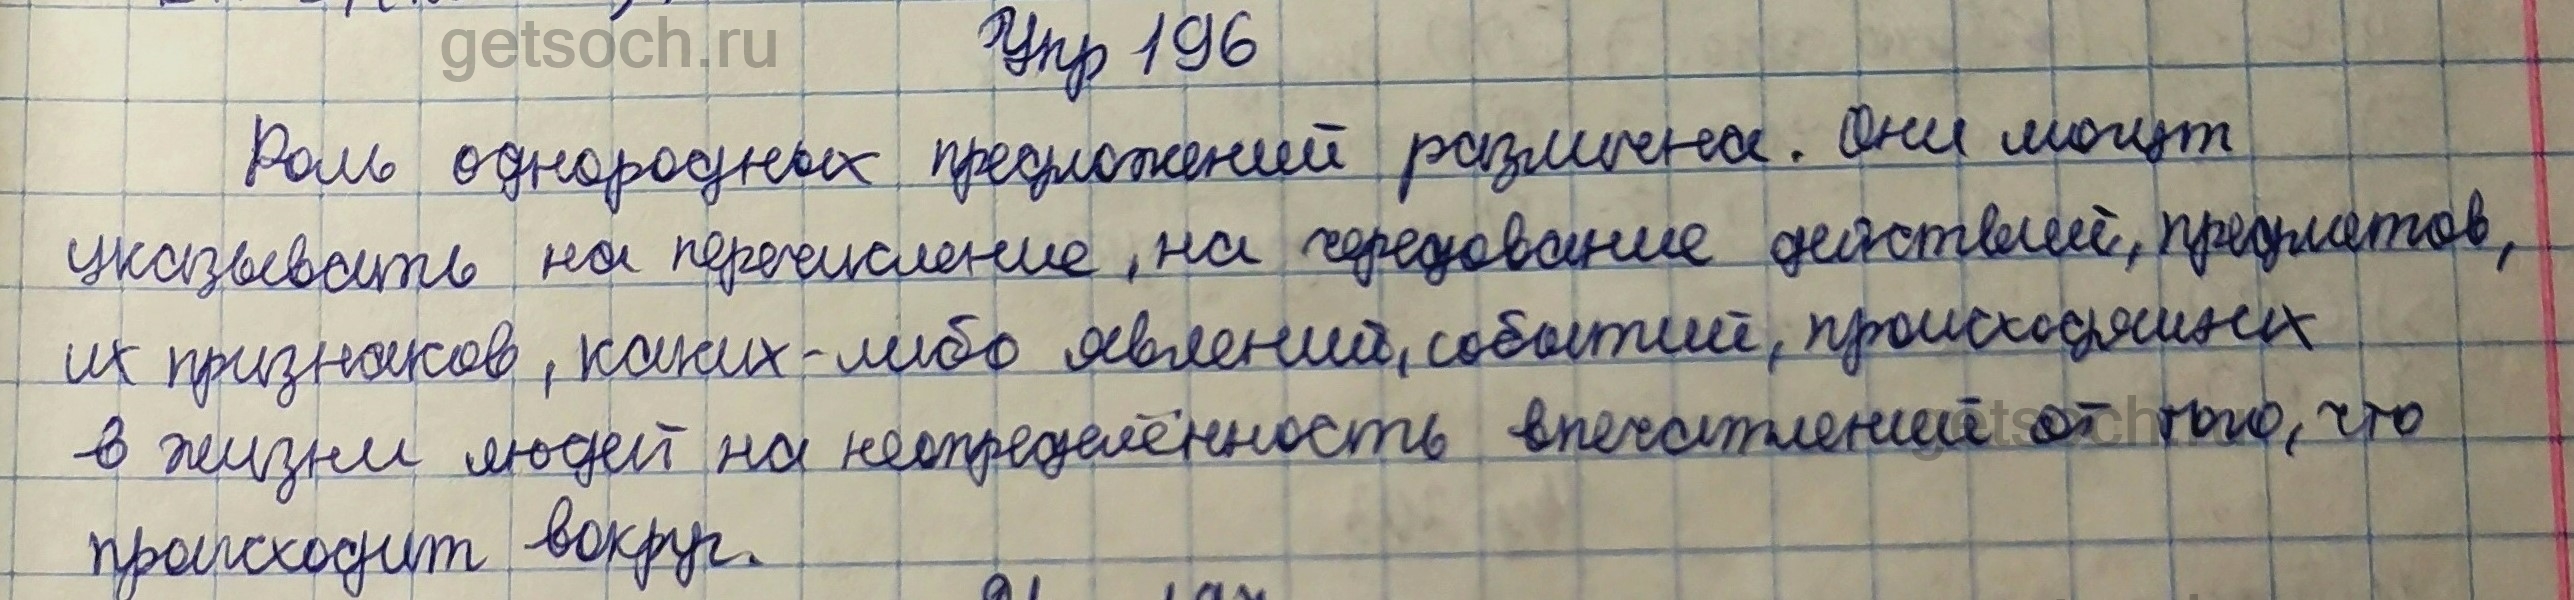 getsoch.ru
Упр 196
Роль однородных предложений различна. Они могут
указывать на перечисление, на чередование действий, предметов,
их признаков, каких-либо явлений, событий, происходящих
в жизни людей на неопределённость впечатлений от того, что
getsoch.ru
происходит вокруг.